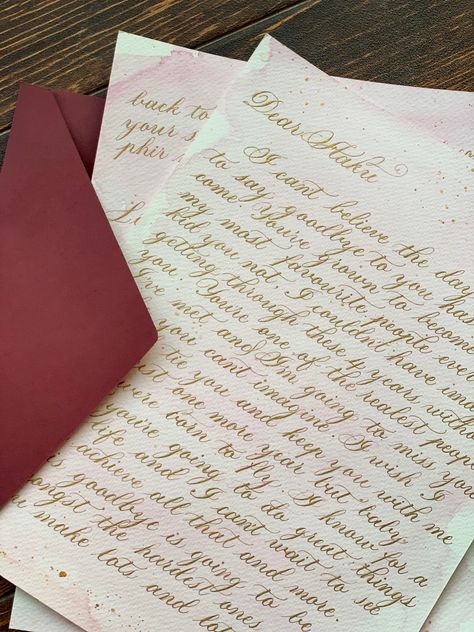 back to
your s
phir
Dear Haku
I cant believe the day
to say goodbye to you has
come. You've grown to become
my most favourite people eve
kid you not, I couldn't have im
getting through these 4 years with
you. You're one of the realest peop
I've met and I'm going to miss you
you cant imagine. I wish I
to you and keep you with me
one more year but, baby
we're born to fly. I know for a
you're going to do great things
life and I can't wait to see
achieve all that and more.
s goodbye is going to be
ongst the hardest ones
make lots and lo